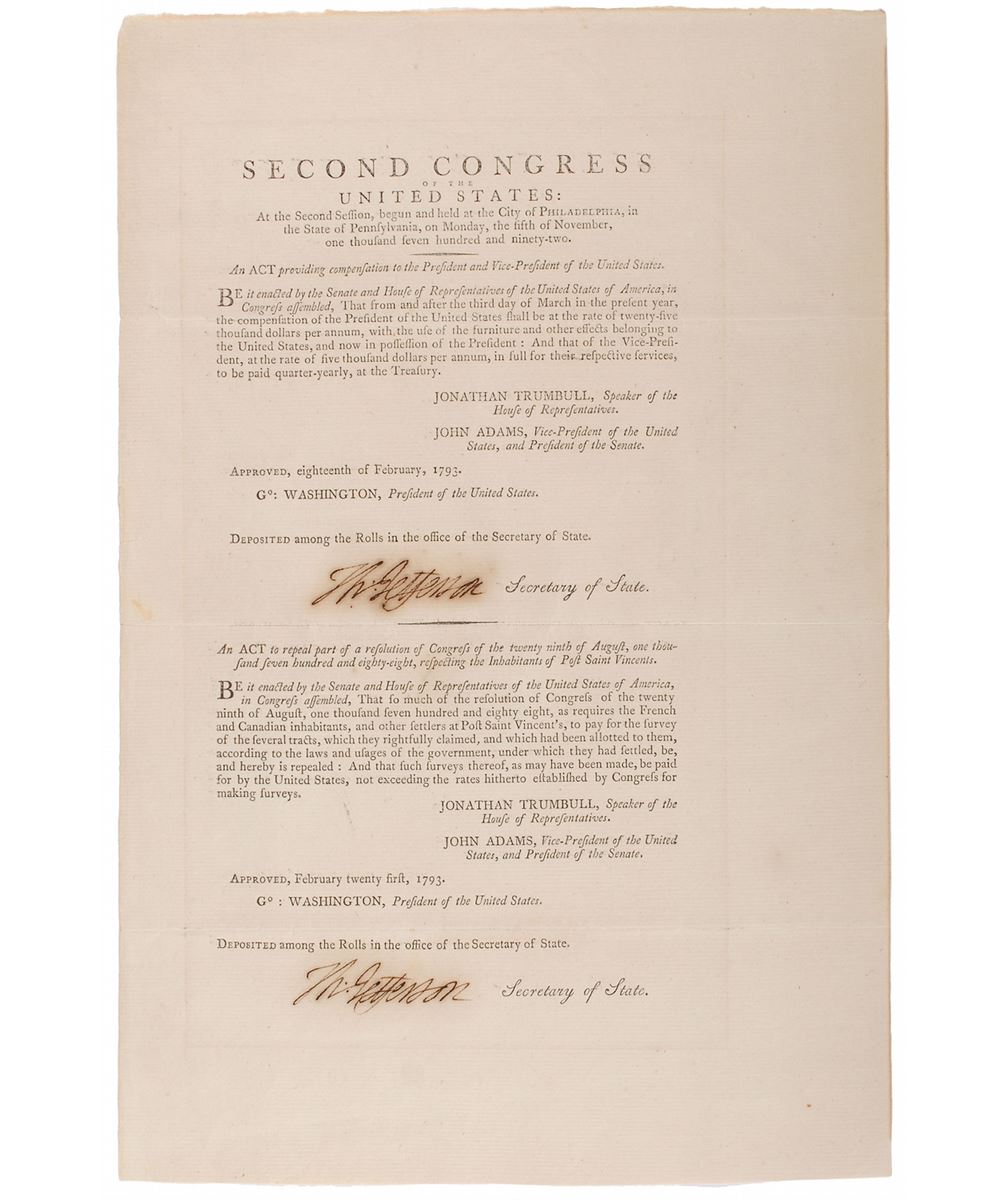 SECOND CONGRESS
OF THE
UNITED STATES:
At the Second Seſſion, begun and held at the City of PHILADELPHIA, in
the State of Pennſylvania, on Monday, the fifth of November,
one thouſand ſeven hundred and ninety-two.
An ACT providing compenſation to the Preſident and Vice-Preſident of the United States.
BE it enacted by the Senate and Houſe of Repreſentatives of the United States of America, in
Congreſs aſſembled, That from and after the third day of March in the preſent year,
the compenſation of the Preſident of the United States ſhall be at the rate of twenty-five
thouſand dollars per annum, with the uſe of the furniture and other effects belonging to
the United States, and now in poſſeſſion of the Preſident : And that of the Vice-Preſi-
dent, at the rate of five thouſand dollars per annum, in full for their reſpective ſervices,
to be paid quarter-yearly, at the Treaſury.
JONATHAN TRUMBULL, Speaker of the
Houſe of Repreſentatives.
JOHN ADAMS, Vice-Preſident of the United
States, and Preſident of the Senate.
APPROVED, eighteenth of February, 1793.
Go: WASHINGTON, Preſident of the United States.
DEPOSITED among the Rolls in the office of the Secretary of State.
Th. Jefferson Secretary of State.
An ACT to repeal part of a reſolution of Congreſs of the twenty ninth of Auguſt, one thou-
ſand ſeven hundred and eighty-eight, reſpecting the Inhabitants of Poſt Saint Vincents.
BE it enacted by the Senate and Houſe of Repreſentatives of the United States of America,
in Congreſs aſſembled, That ſo much of the reſolution of Congreſs of the twenty
ninth of Auguſt, one thouſand ſeven hundred and eighty eight, as requires the French
and Canadian inhabitants, and other ſettlers at Poſt Saint Vincent's, to pay for the ſurvey
of the ſeveral tracts, which they rightfully claimed, and which had been allotted to them,
according to the laws and uſages of the government, under which they had ſettled, be,
and hereby is repealed : And that ſuch ſurveys thereof, as may have been made, be paid
for by the United States, not exceeding the rates hitherto eſtabliſhed by Congreſs for
making ſurveys.
JONATHAN TRUMBULL, Speaker of the
Houſe of Repreſentatives.
JOHN ADAMS, Vice-Preſident of the United
States, and Preſident of the Senate.
APPROVED, February twenty firſt, 1793.
Go : WASHINGTON, Preſident of the United States.
DEPOSITED among the Rolls in the office of the Secretary of State.
Th. Jefferson Secretary of State.